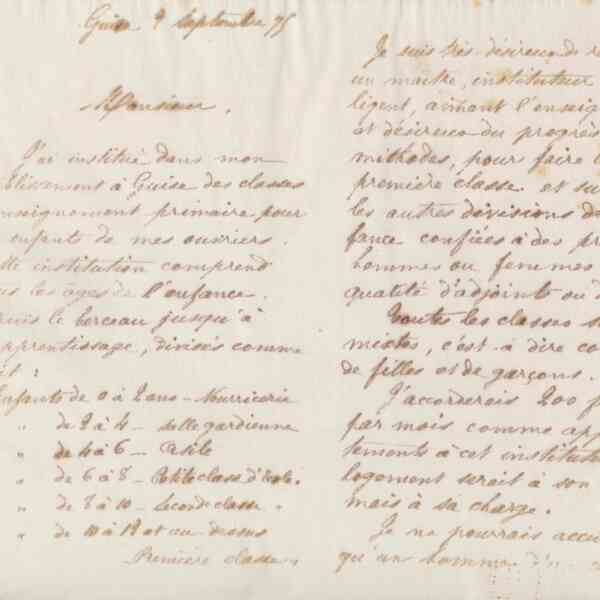 Guise 9 Septembre 75
Monsieur,
J'ai institué dans mon
blissement à Guise des classes
enseignement primaire pour
enfants de mes ouvriers.
tte institution comprend
us les âges de l'enfance.
puis le berceau jusqu'à
apprentissage, divisés comme
it :
Enfants de 0 à 2 ans - Nourricerie
" de 2 à 4 - salle gardienne
" de 4 à 6 - Petite
" de 6 à 8 - Petite classe d'école.
" de 8 à 10 - seconde classe.
" de 10 à 12 et au dessus
Première classe.
Je suis très désireux de r
un maître, instituteur
ligent, aimant l'enseig
et désireux du progrès
méthodes, pour faire l
première classe et su
les autres divisions d
fance confiées à des pr
hommes ou femmes
qualité d'adjoints ou d
Toutes les classes s
mixtes, c'est à dire co
de filles et de garçons.
J'accorderais 200 f
par mois comme app
tements à cet institut
logement serait à son
mais à sa charge.
Je ne pourrais accu
qu'un homme d'